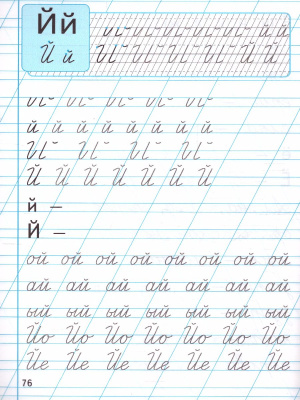 Йй
й й
Й й
Й Й
й й й й й й й й
Й Й Й Й Й Й Й
й –
Й –
ой ой ой ой ой ой ой ой
ай ай ай ай ай ай ай
ый ый ый ый ый ый ый
Йо Йо Йо Йо Йо Йо Йо
Йе Йе Йе Йе Йе Йе Йе
76